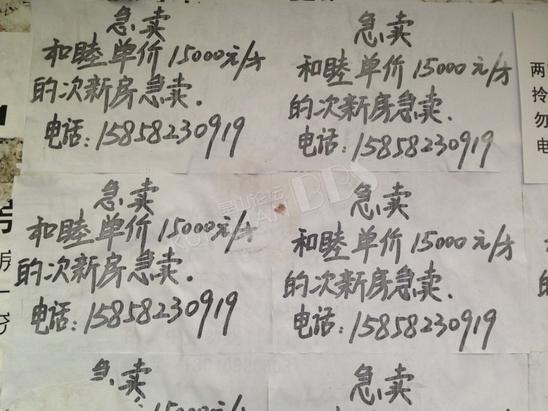 急卖
和睦单价15000元/方
的次新房急卖.
电话:15858230919
急卖
和睦单价15000元/方
的次新房急卖.
电话:15858230919
两
拎
勿
电
急卖
和睦单价15000元/方
的次新房急卖.
电话:15858230919
急卖
和睦单价15000元/方
的次新房急卖.
电话:15858230919
房
BBS
急卖
15000元/
急卖